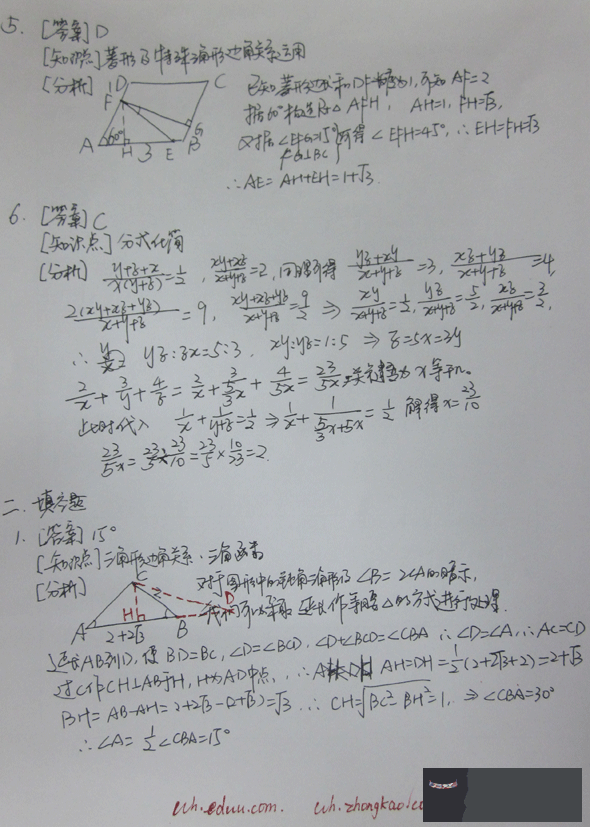 5. [答案] D
[知识点] 菱形及特殊三角形边角关系运用
[分析]
D
C
F
A
60°
H
3
E
B
G
已知菱形边长和DF 为1, 可知 AF=2
据60°构造Rt△AFH, AH=1, FH=√3,
又据∠EFG=15° 所得∠EFH=45°, ∴EH=FH=√3
FG⊥BC
∴AE=AH+EH=1+√3.
6. [答案] C
[知识点] 分式化简
[分析] (y+z+x)/(x(y+z))=1/2, (xy+xz)/(x+y+z)=2, 同理可得 (yz+xy)/(x+y+z)=3, (xz+yz)/(x+y+z)=4,
2(xy+xz+yz)/(x+y+z)=9, (xy+xz+yz)/(x+y+z)=9/2 ⇒ xy/(x+y+z)=1/2, yz/(x+y+z)=5/2, xz/(x+y+z)=3/2,
∴ yz:zx=5:3, xy:yz=1:5 ⇒ z=5x=3y
2/x+3/y+4/z=2/x+3/(5/3x)+4/5x=23/5x, 关键为x等于几。
此时代入 1/x+1/(y+z)=1/2 ⇒ 1/x+1/(5/3x+5x)=1/2 解得x=23/10
23/5x=23/5×10/23=2.
二. 填空题
1. [答案] 15°
[知识点] 三角形边角关系、三角函数
[分析]
C
A
H
B
D
2+2√3
2
对于图形中的钝角三角形及∠B=2∠A的暗示,
我们可以采取延长作等腰△的方式进行处理.
延长AB到D, 使BD=BC, ∠D=∠BCD, ∠D+∠BCD=∠CBA ∴∠D=∠A, ∴AC=CD
过C作CH⊥AB于H, H为AD中点, ∴ AH=DH=1/2(2+2√3+2)=2+√3
BH=AB-AH=2+2√3-(2+√3)=√3 ∴CH=√(BC²-BH²)=1, ⇒∠CBA=30°
∴∠A=1/2∠CBA=15°
wh.eduu.com. wh.zhongkao.co